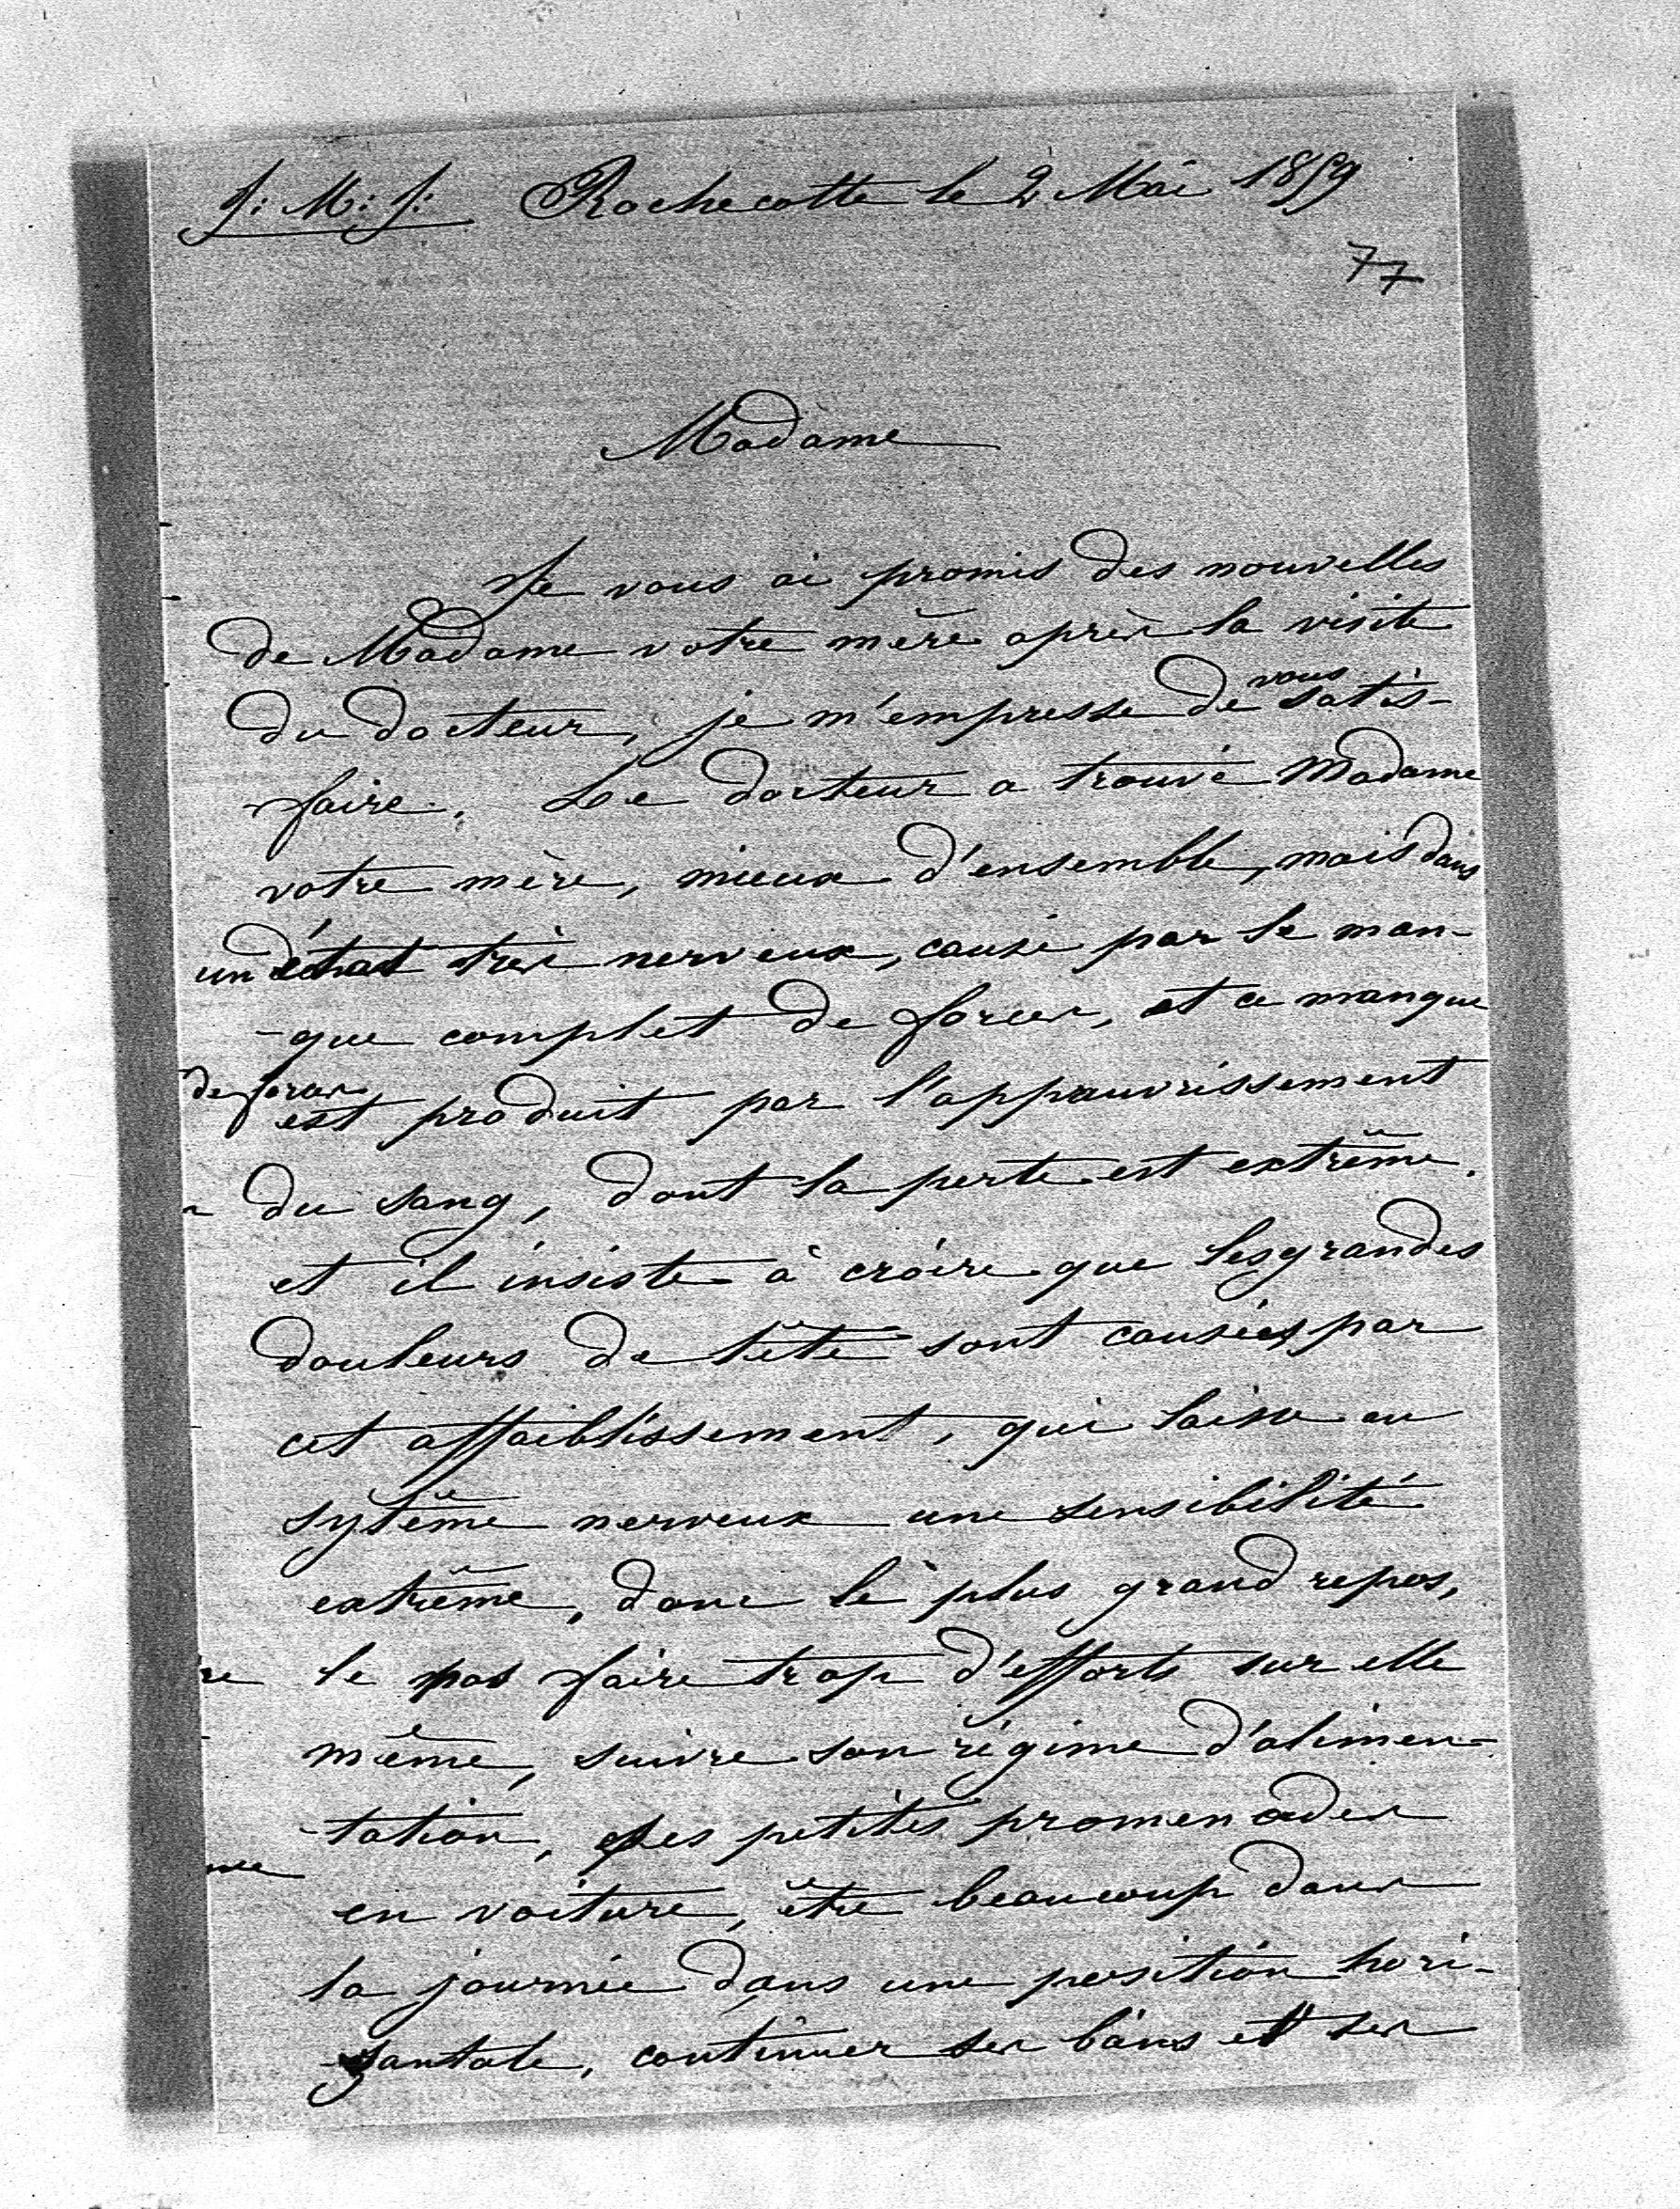 J: M: J: Rochecotte le 2 Mai 1859
77
Madame
Je vous ai promis des nouvelles
de Madame votre mère après la visite
du docteur, je m'empresse de vous satis-
faire. Le docteur a trouvé Madame
votre mère, mieux d'ensemble, mais dans
un état très nerveux, causé par le man-
-que complet de forces, et ce manque
de forces est produit par l'appauvrissement
du sang, dont la perte est extrême.
et il insiste à croire que les grandes
douleurs de tête sont causées par
cet affaiblissement, qui laisse au
sytême nerveux une sensibilité
extrême, donc le plus grand repos,
le pas faire trop d'efforts sur elle
même, suivre son régime d'alimen-
-tation, des petites promenades
en voiture, être beaucoup dans
la journée dans une position hori-
zantale, continuer ses bains et ses